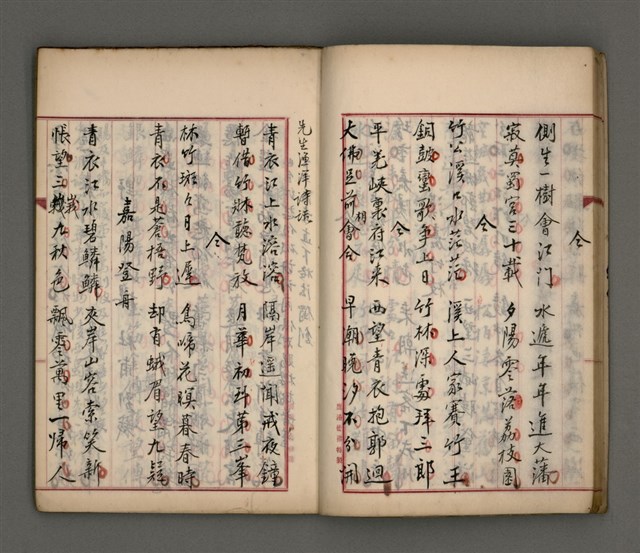 仝
側生一樹會江門 水遞年年進大藩
寂寞蜀宮三十載 夕陽零落荔枝園
仝
竹公溪口水茫茫 溪上人家賽竹王
銅鼓蠻歌爭上日 竹林深處拜三郎
仝
平羌峽裏府江來 西望青衣抱郭迴
大佛巖前相會合 早潮晚汐不分開
先生漁洋詩話
青衣江上水溶溶 隔岸遙聞戒夜鐘
暫借竹牀聽梵放 月華初到第三峯
仝
林竹斑々日上遲 鳥啼花暝暮春時
青衣不是蒼梧野 却有蛾眉望九疑
嘉陽登舟
青衣江水碧鱗鱗 夾岸山容索笑新
悵望三峩九秋色 飄零萬里一歸人